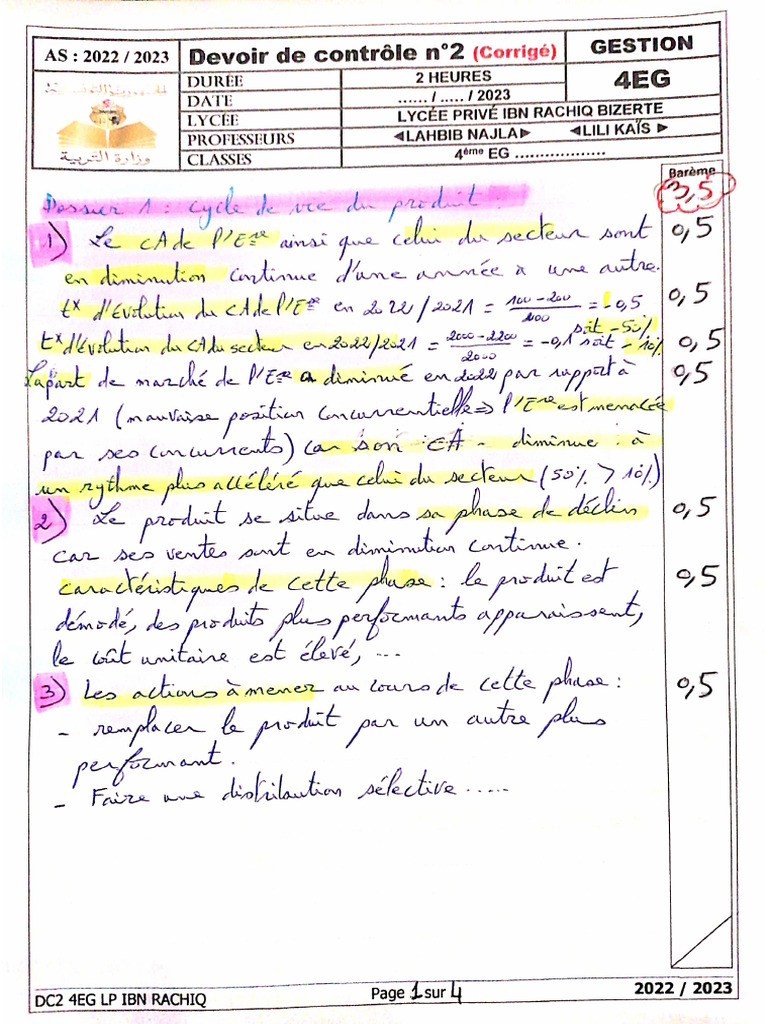 AS : 2022 / 2023
Devoir de contrôle n°2 (Corrigé)
GESTION
4EG
DURÉE
2 HEURES
DATE
...... / ..... / 2023
LYCÉE
LYCÉE PRIVÉ IBN RACHIQ BIZERTE
PROFESSEURS
◄LAHBIB NAJLA► ◄LILI KAÏS ►
CLASSES
4ème EG ..................
وزارة التربية
Barème
3,5
Dossier 1 : cycle de vie du produit.
1) Le CA de l'Ese ainsi que celui du secteur sont 0,5
en diminution continue d'une année à une autre.
tx d'évolution du CA de l'Ese en 2022/2021 = (100 - 200)/100 = -0,5 0,5
soit -50%
tx d'évolution du CA du secteur en 2022/2021 = (2000 - 2200)/2000 = -0,1 soit -10% 0,5
La part de marché de l'Ese a diminué en 2022 par rapport à 0,5
2021 (mauvaise position concurrentielle => l'Ese est menacée
par ses concurrents) car son CA - diminue : à
un rythme plus accéléré que celui du secteur (50% > 10%)
2) Le produit se situe dans sa phase de déclin 0,5
car ses ventes sont en diminution continue.
caractéristiques de cette phase : le produit est 0,5
démodé, des produits plus performants apparaissent,
le coût unitaire est élevé, ...
3) Les actions à mener au cours de cette phase : 0,5
- remplacer le produit par un autre plus
performant.
- Faire une distribution sélective .....
DC2 4EG LP IBN RACHIQ
Page 1 sur 4
2022 / 2023